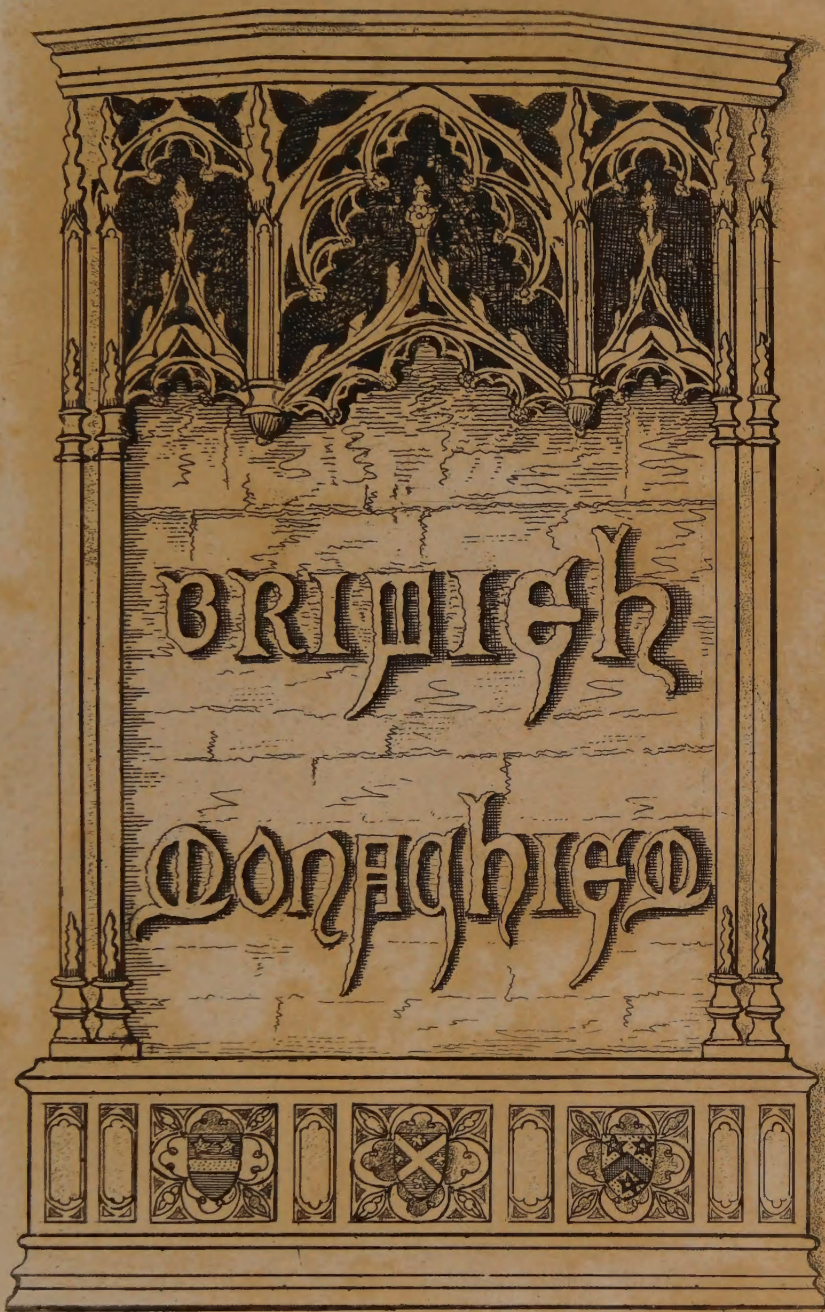 BRITISH
MONACHISM